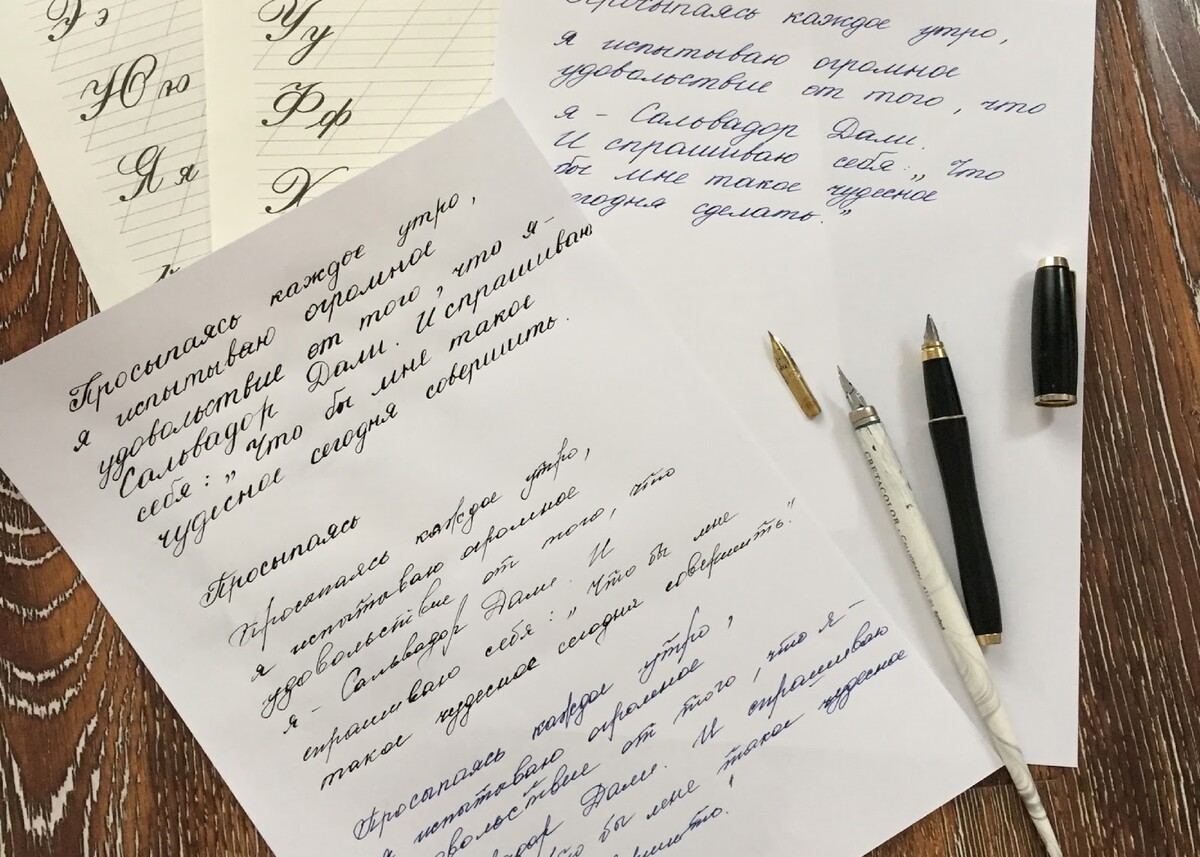 Уу
Юю
Фф
Яя
Х
Просыпаясь каждое утро,
я испытываю огромное
удовольствие от того, что
я - Сальвадор Дали.
И спрашиваю себя: „Что
бы мне такое чудесное
сегодня сделать."
Просыпаясь каждое утро,
я испытываю огромное
удовольствие от того, что я -
Сальвадор Дали. И спрашиваю
себя: „Что бы мне такое
чудесное сегодня совершить.
Просыпаясь
Просыпаясь каждое утро,
я испытываю огромное
удовольствие от того, что
я - Сальвадор Дали. И
спрашиваю себя: „Что бы мне
такое чудесное сегодня совершить."
Просыпаясь каждое утро,
я испытываю огромное
удовольствие от того, что я -
Дали. И спрашиваю
бы мне такое чудесное
CRETACOLOR